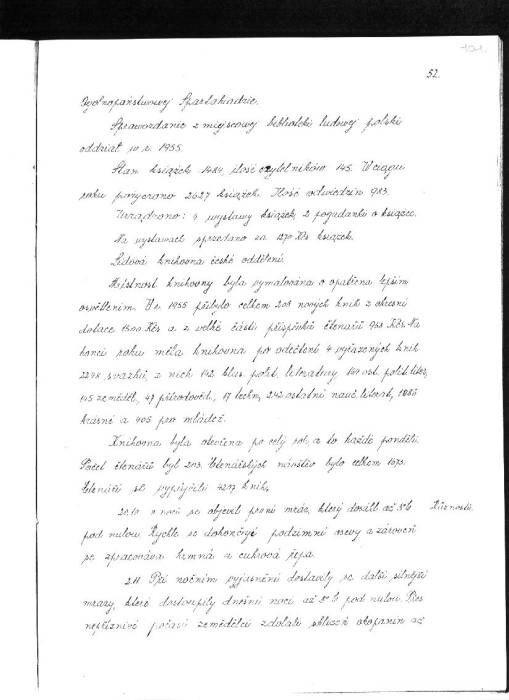 101.
52.
Ogólnopaństwowej Spartakiadzie.
Sprawozdanie z miejscowej biblioteki ludowej polski
oddział w r. 1955.
Stan książek 1484, ilość czytelników 145. W ciągu
roku pożyczono 2627 książek. Ilość odwiedzin 983.
Urządzono: 4 wystawy książek, 2 pogadanki o książce.
Na wystawach sprzedano za 1270 Kčs książek.
Lidová knihovna české oddělení.
Místnost knihovny byla vymalována a opatřena lepším
osvětlením. V r. 1955 přibylo celkem 208 nových knih z okresní
dotace 1500 Kčs a z velké části příspěvků čtenářů 958 Kčs. Na
konci roku měla knihovna po odečtení 4 vyřazených knih
2248 svazků, z nich 142 klas. polit. literatury, 164 ost. polit. liter,
145 zeměděl., 47 přírodověd., 17 techn., 242 ostatní nauč. literat.,
krásné a 405 pro mládež.
Knihovna byla otevřena po celý rok, a to každé pondělí.
Počet čtenářů byl 203. Čtenářských návštěv bylo celkem 1673.
Čtenáři se vypůjčili 4297 knih.
29.10. v noci se objevil první mráz, který dosáhl až 5°C Různosti.
pod nulou. Rychle se dokončují podzimní osevy a zároveň
se zpracovává krmná a cukrová řepa.
2.11. Po nočním vyjasnění dostavily se další silnější
mrazy, které dostoupily dnešní noci až 8°C pod nulou. Přes
nepříznivé počasí zemědělci zdolali sklizeň okopanin až